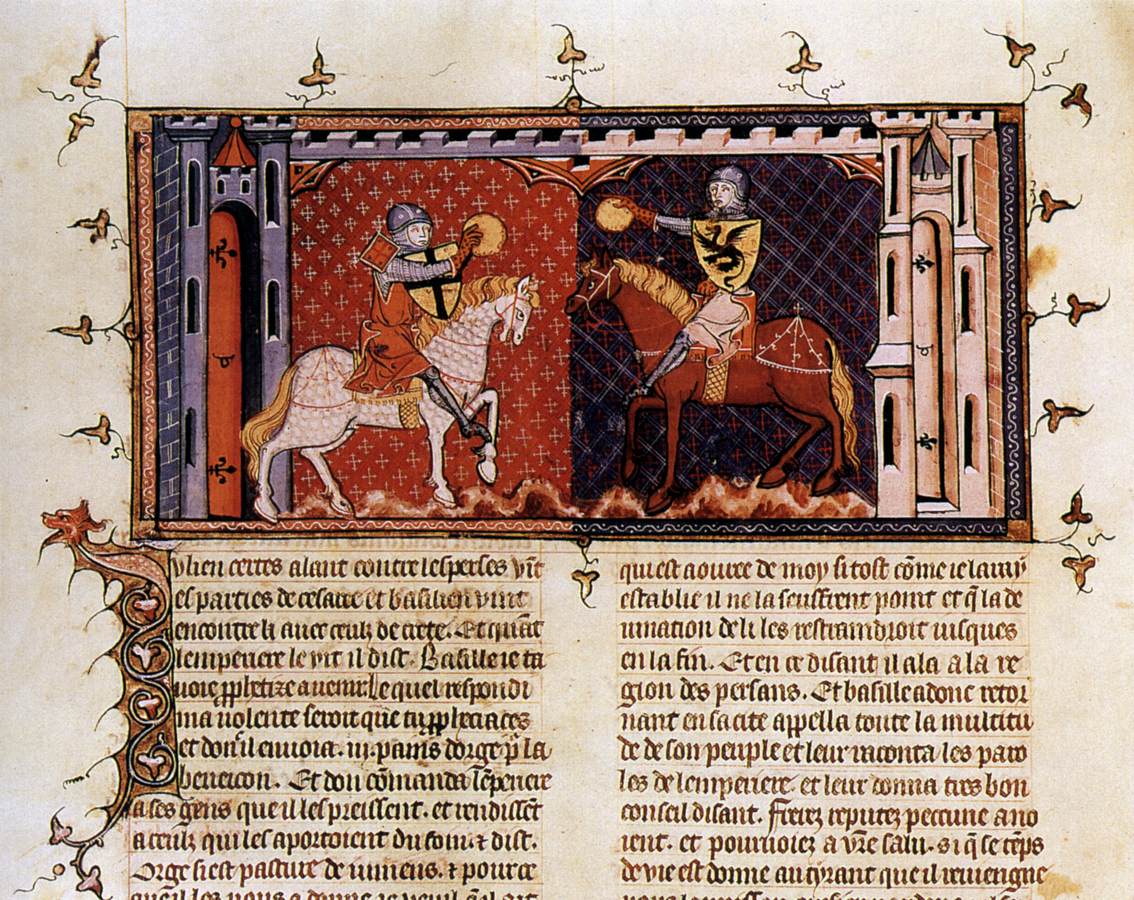 ulien certes alant contre lesperses vīt
es parties de cesaire et basilien vint
encontre li auec ceulz de crete. Et quāt
lempeuere le vit il dist. Basille ie ta
uoie ꝓphetize auenir. Le quel respondi
ma uolente seroit que tu ꝓpheciaces
et don il enuoia .iij. pains dorge p la
beneicon. Et don cōmanda lēpereere
a ses gens que il les preissent. et rendissēt
a ceulz qui les aportoient du foin. ⁊ dist.
Orge si est pasture de iumens. ⁊ pource
quil les nous a donne ie veuil qͥl ait
qui est aouree de moy si tost cōme ie lauray
establie il ne la seuffrent point et q̄ la de
uination de li les restraindroit iusques
en la fin. Et en ce disant il ala a la re
gion des persans. Et basille adonc retor
nant en sa cite appella toute la multitu
de de son peuple et leur raconta les paro
les de lemperiere. et leur donna tres bon
conseil disant. Freres reputez peccune ano
ient. et pouruoiez a vr̄e salu. si q̄ se tēps
de vie est donne au tyrant que il reuiengne